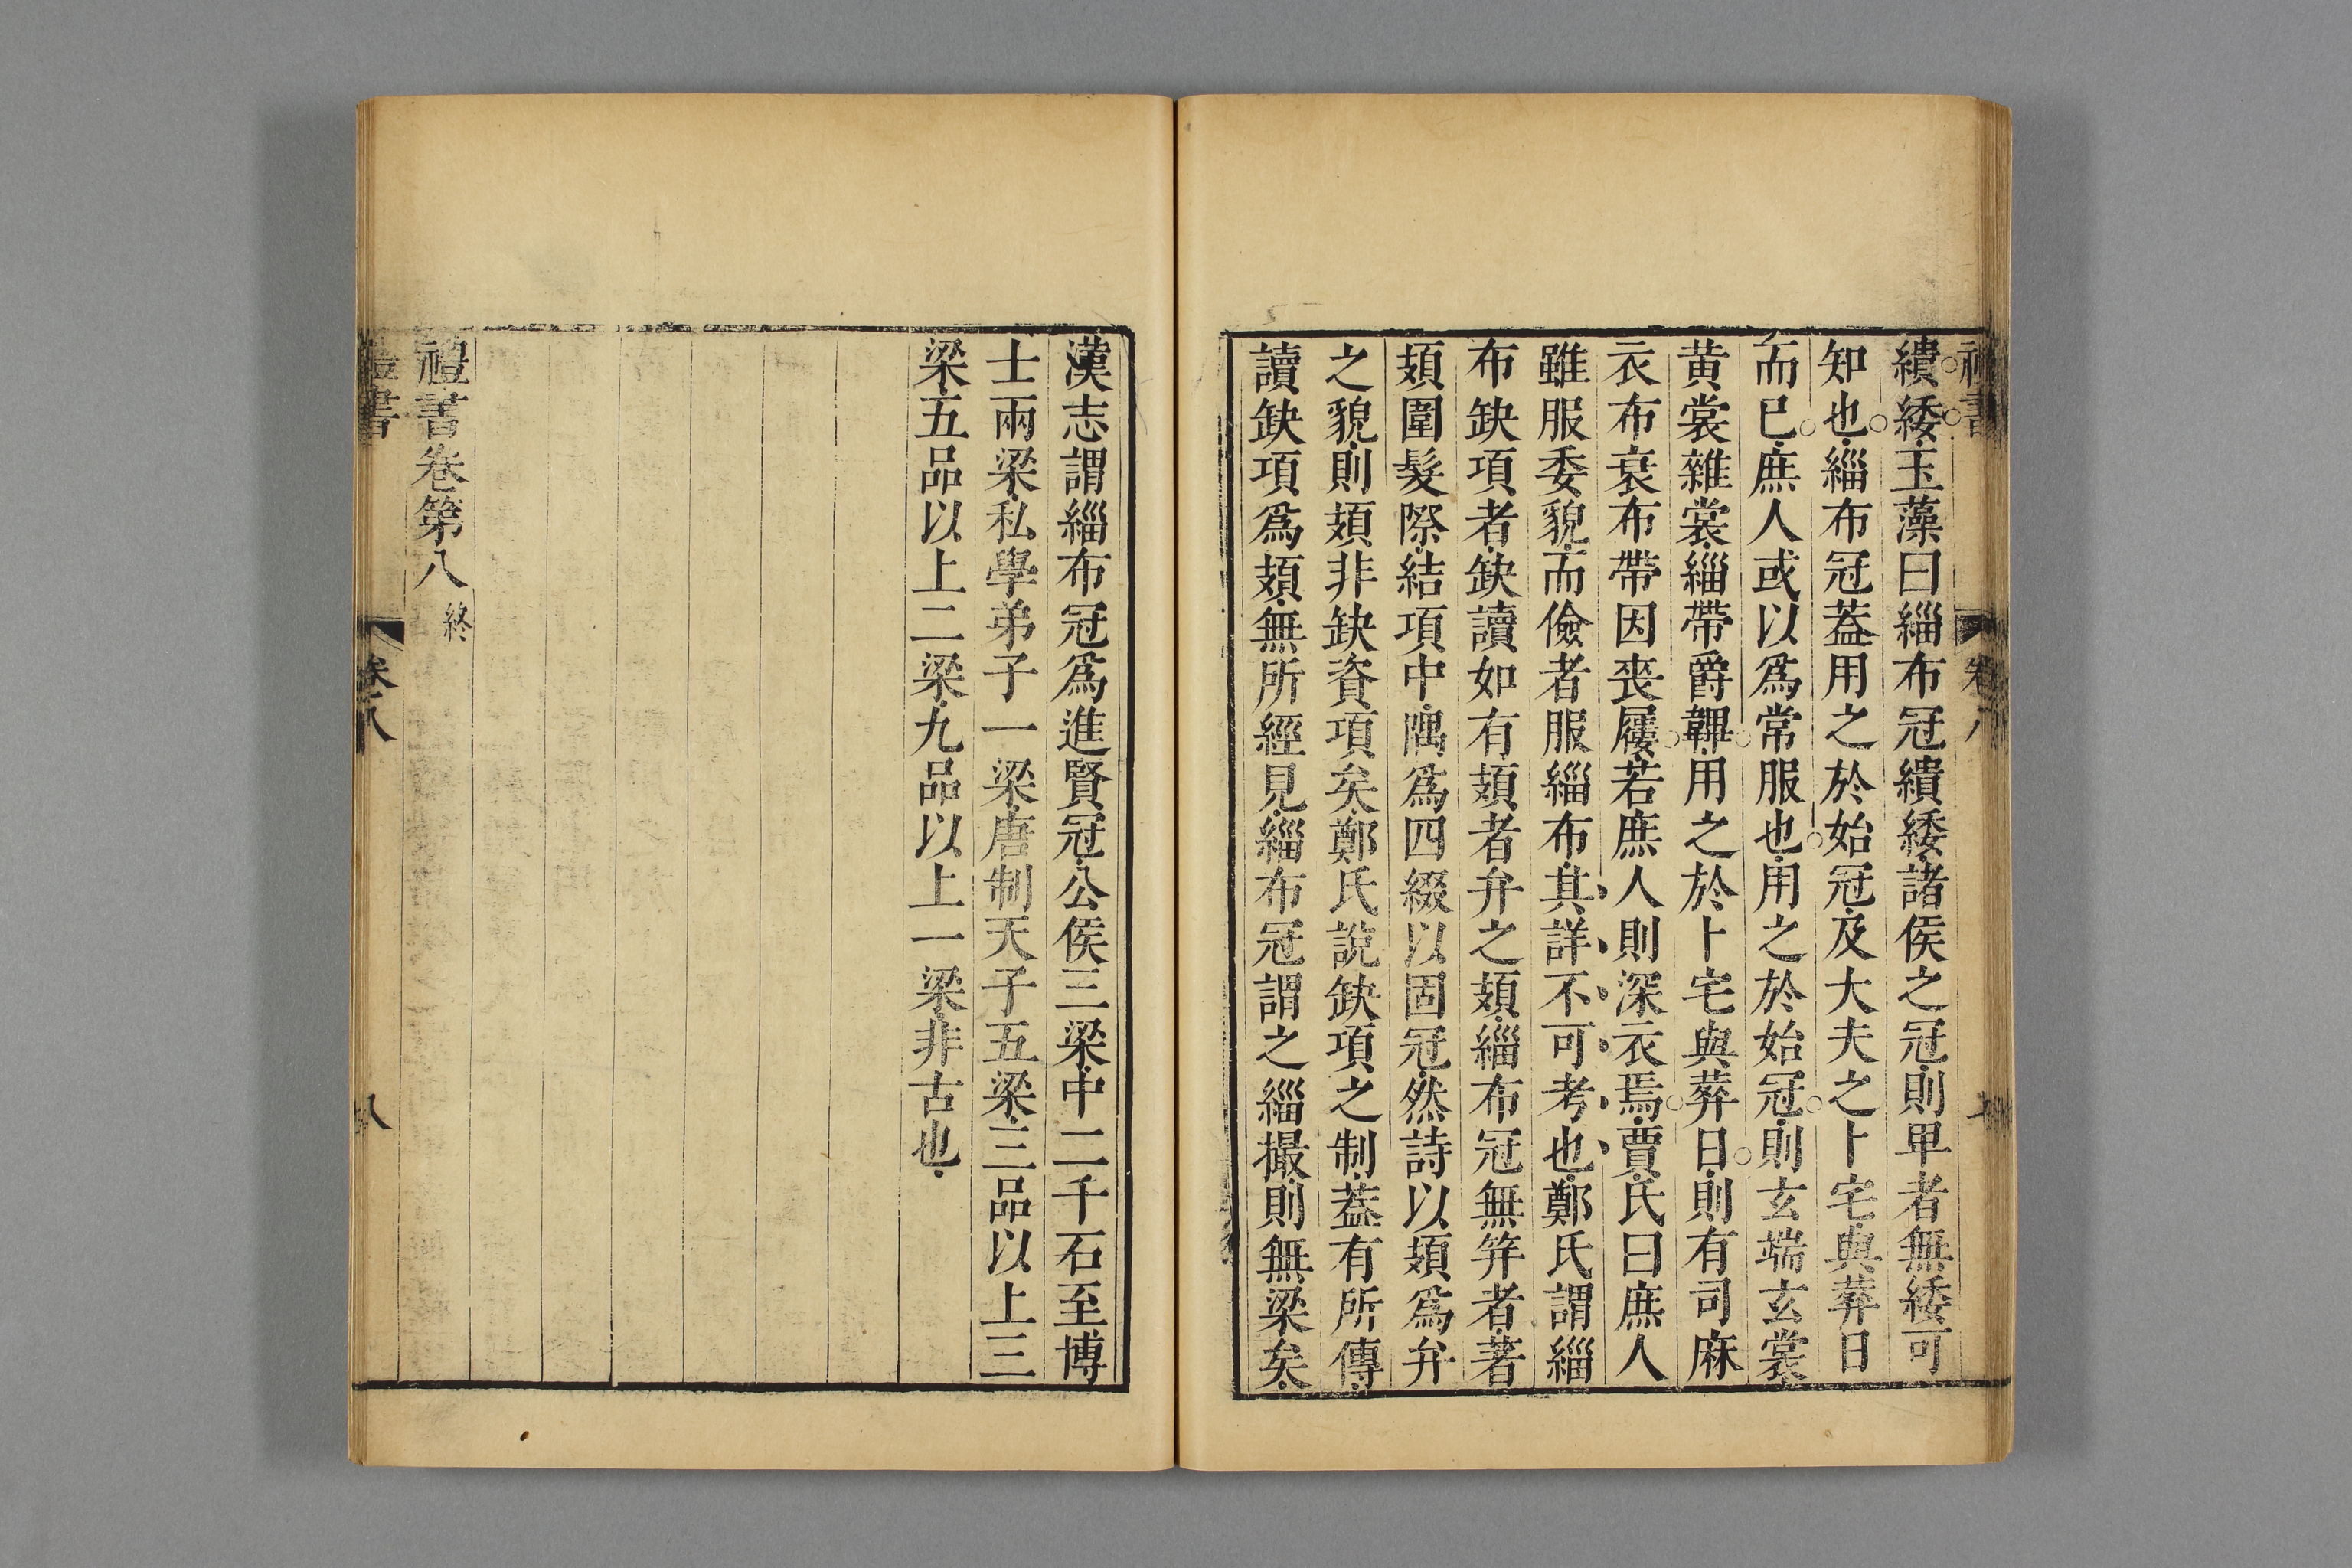 繢緌玉藻曰緇布冠繢緌諸侯之冠則卑者無緌可
知也緇布冠蓋用之於始冠及大夫之卜宅與葬日
而已庶人或以爲常服也用之於始冠則玄端玄裳
黄裳雜裳緇帶爵韠用之於卜宅與葬日則有司麻
衣布衰布帶因喪屨若庶人則深衣焉賈氏曰庶人
雖服委貌而儉者服緇布其詳不可考也鄭氏謂緇
布缺項者缺讀如有頍者弁之頍緇布冠無笄者著
頍圍髮際結項中隅爲四綴以固冠然詩以頍爲弁
之貌則頍非缺資項矣鄭氏說缺項之制蓋有所傳
讀缺項爲頍無所經見緇布冠謂之緇撮則無梁矣
漢志謂緇布冠爲進賢冠公侯三梁中二千石至博
士兩梁私學弟子一梁唐制天子五梁三品以上三
梁五品以上二梁九品以上一梁非古也
禮書卷第八 終
禮書 卷八 八